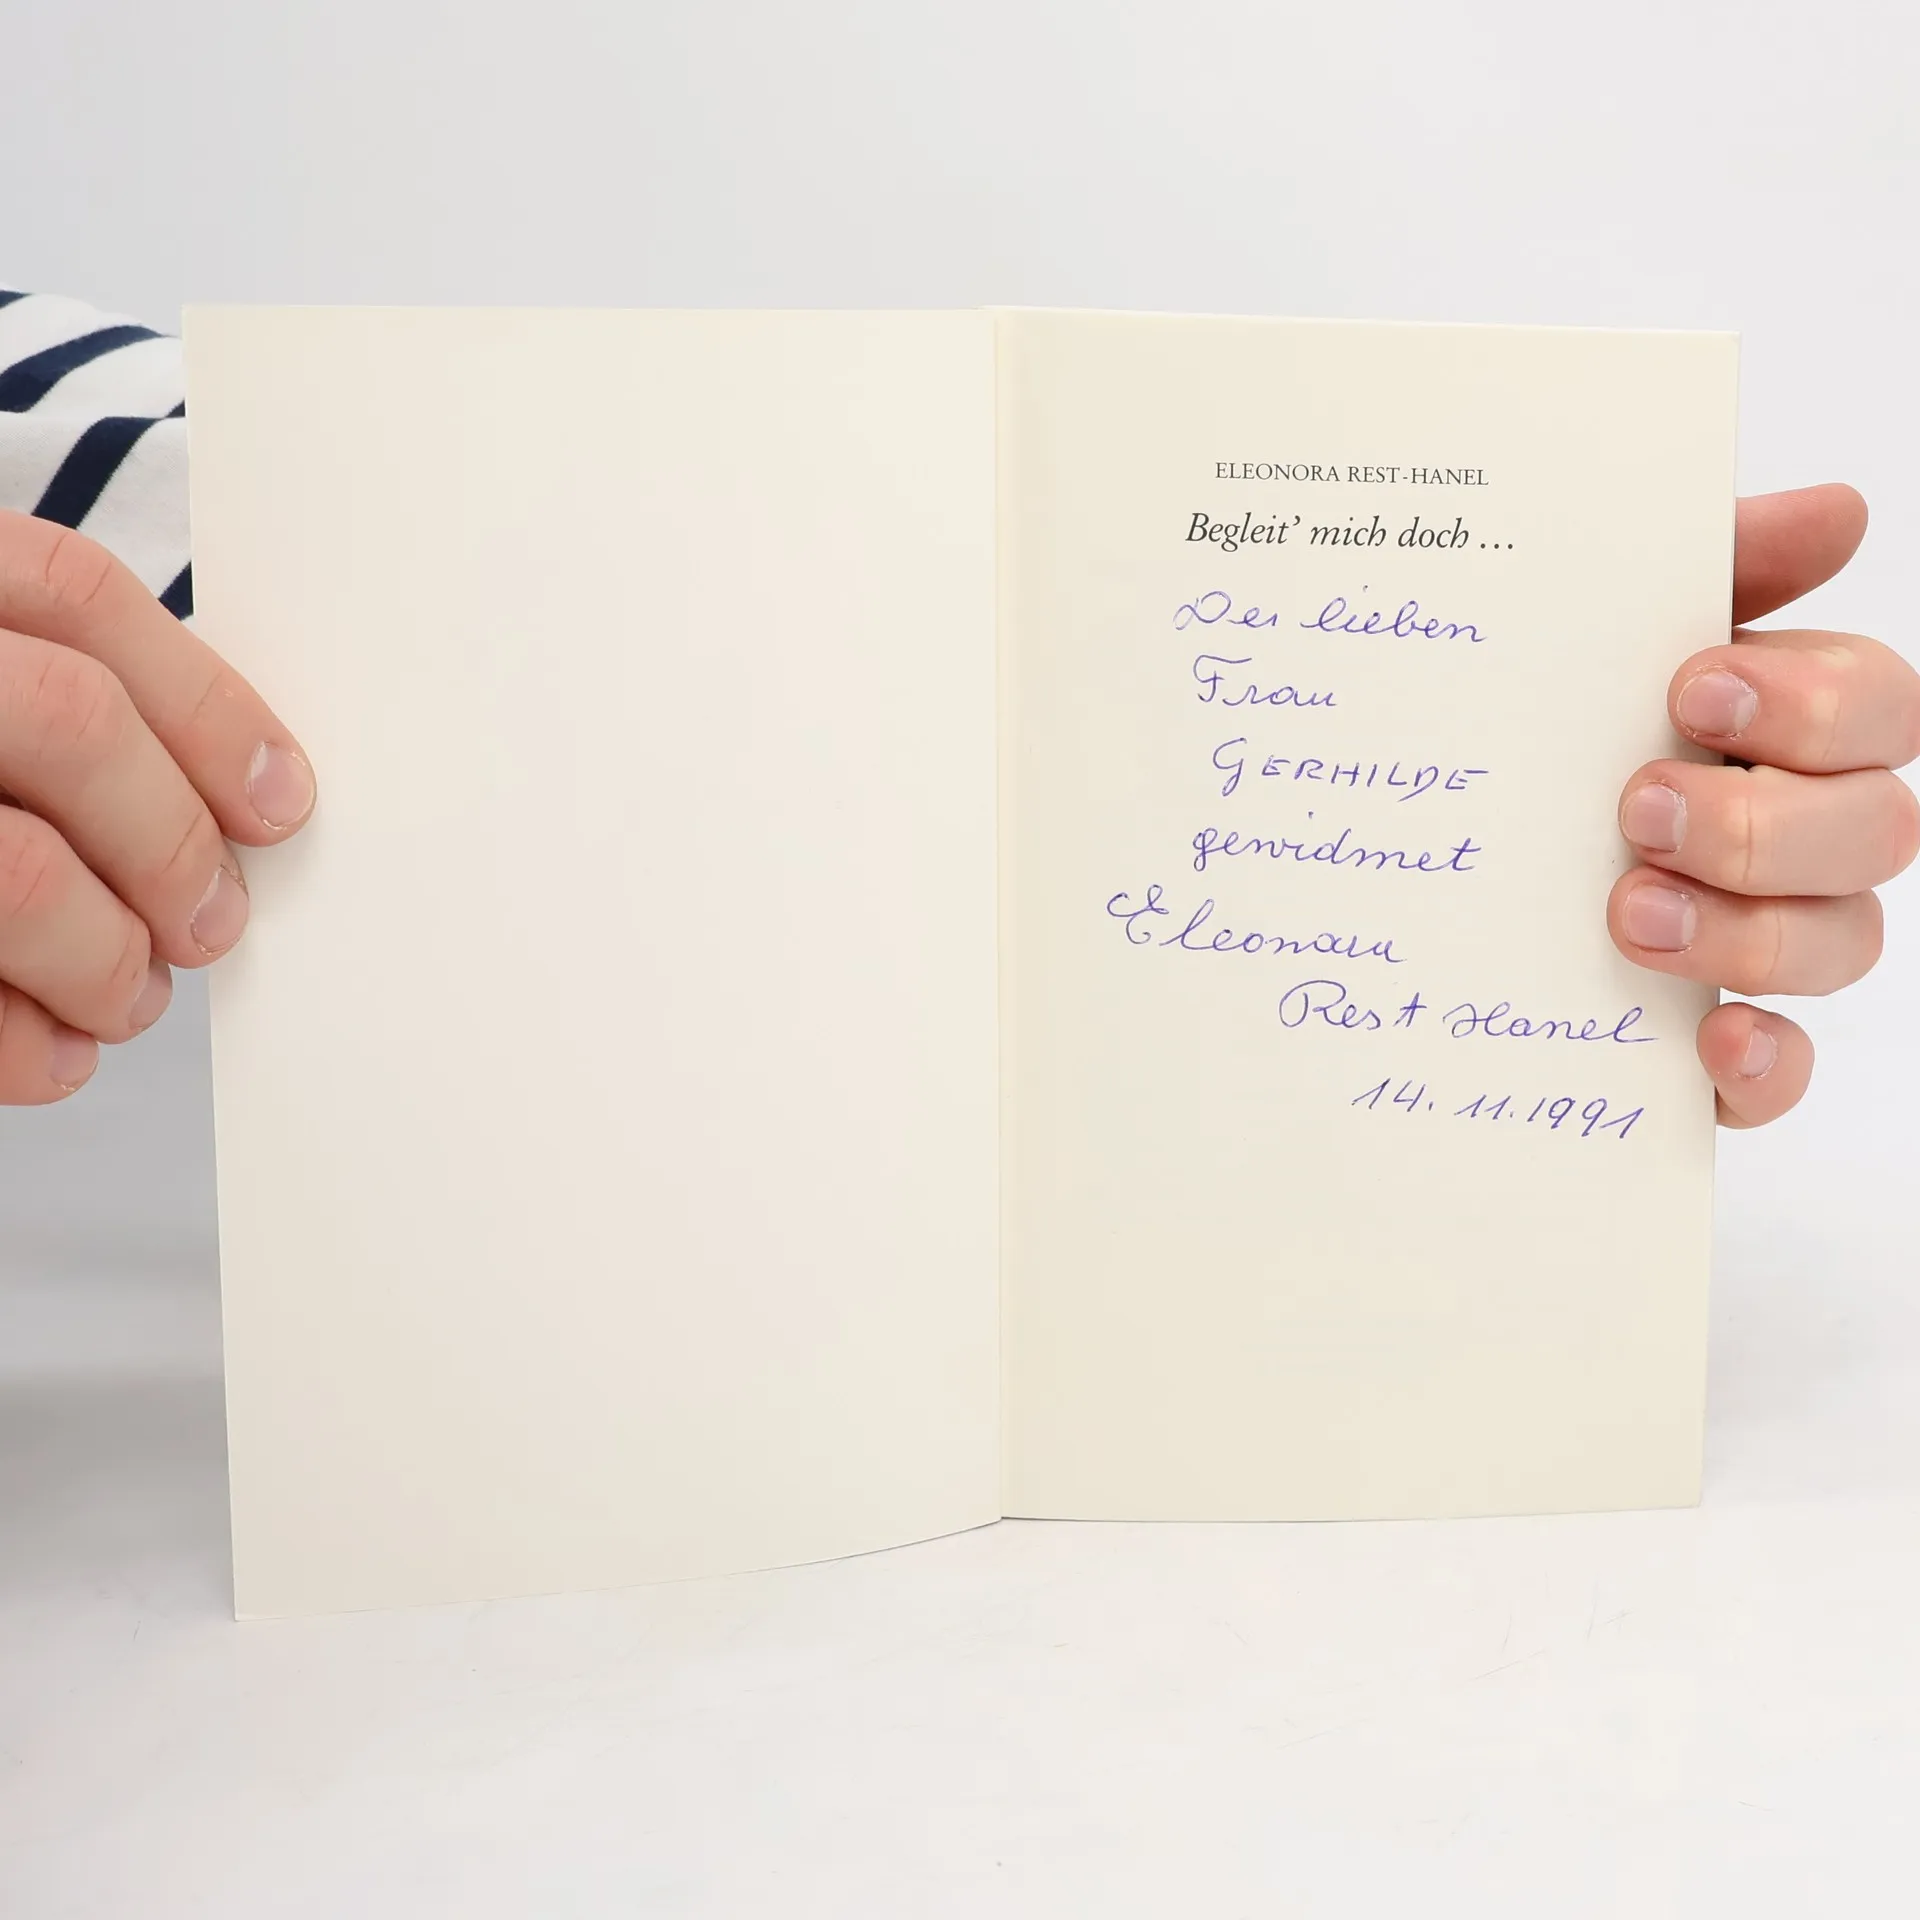 ELEONORA REST-HANEL
Begleit’ mich doch ...
Der lieben
Frau
GERHILDE
gewidmet
Eleonora
Rest Hanel
14. 11. 1991